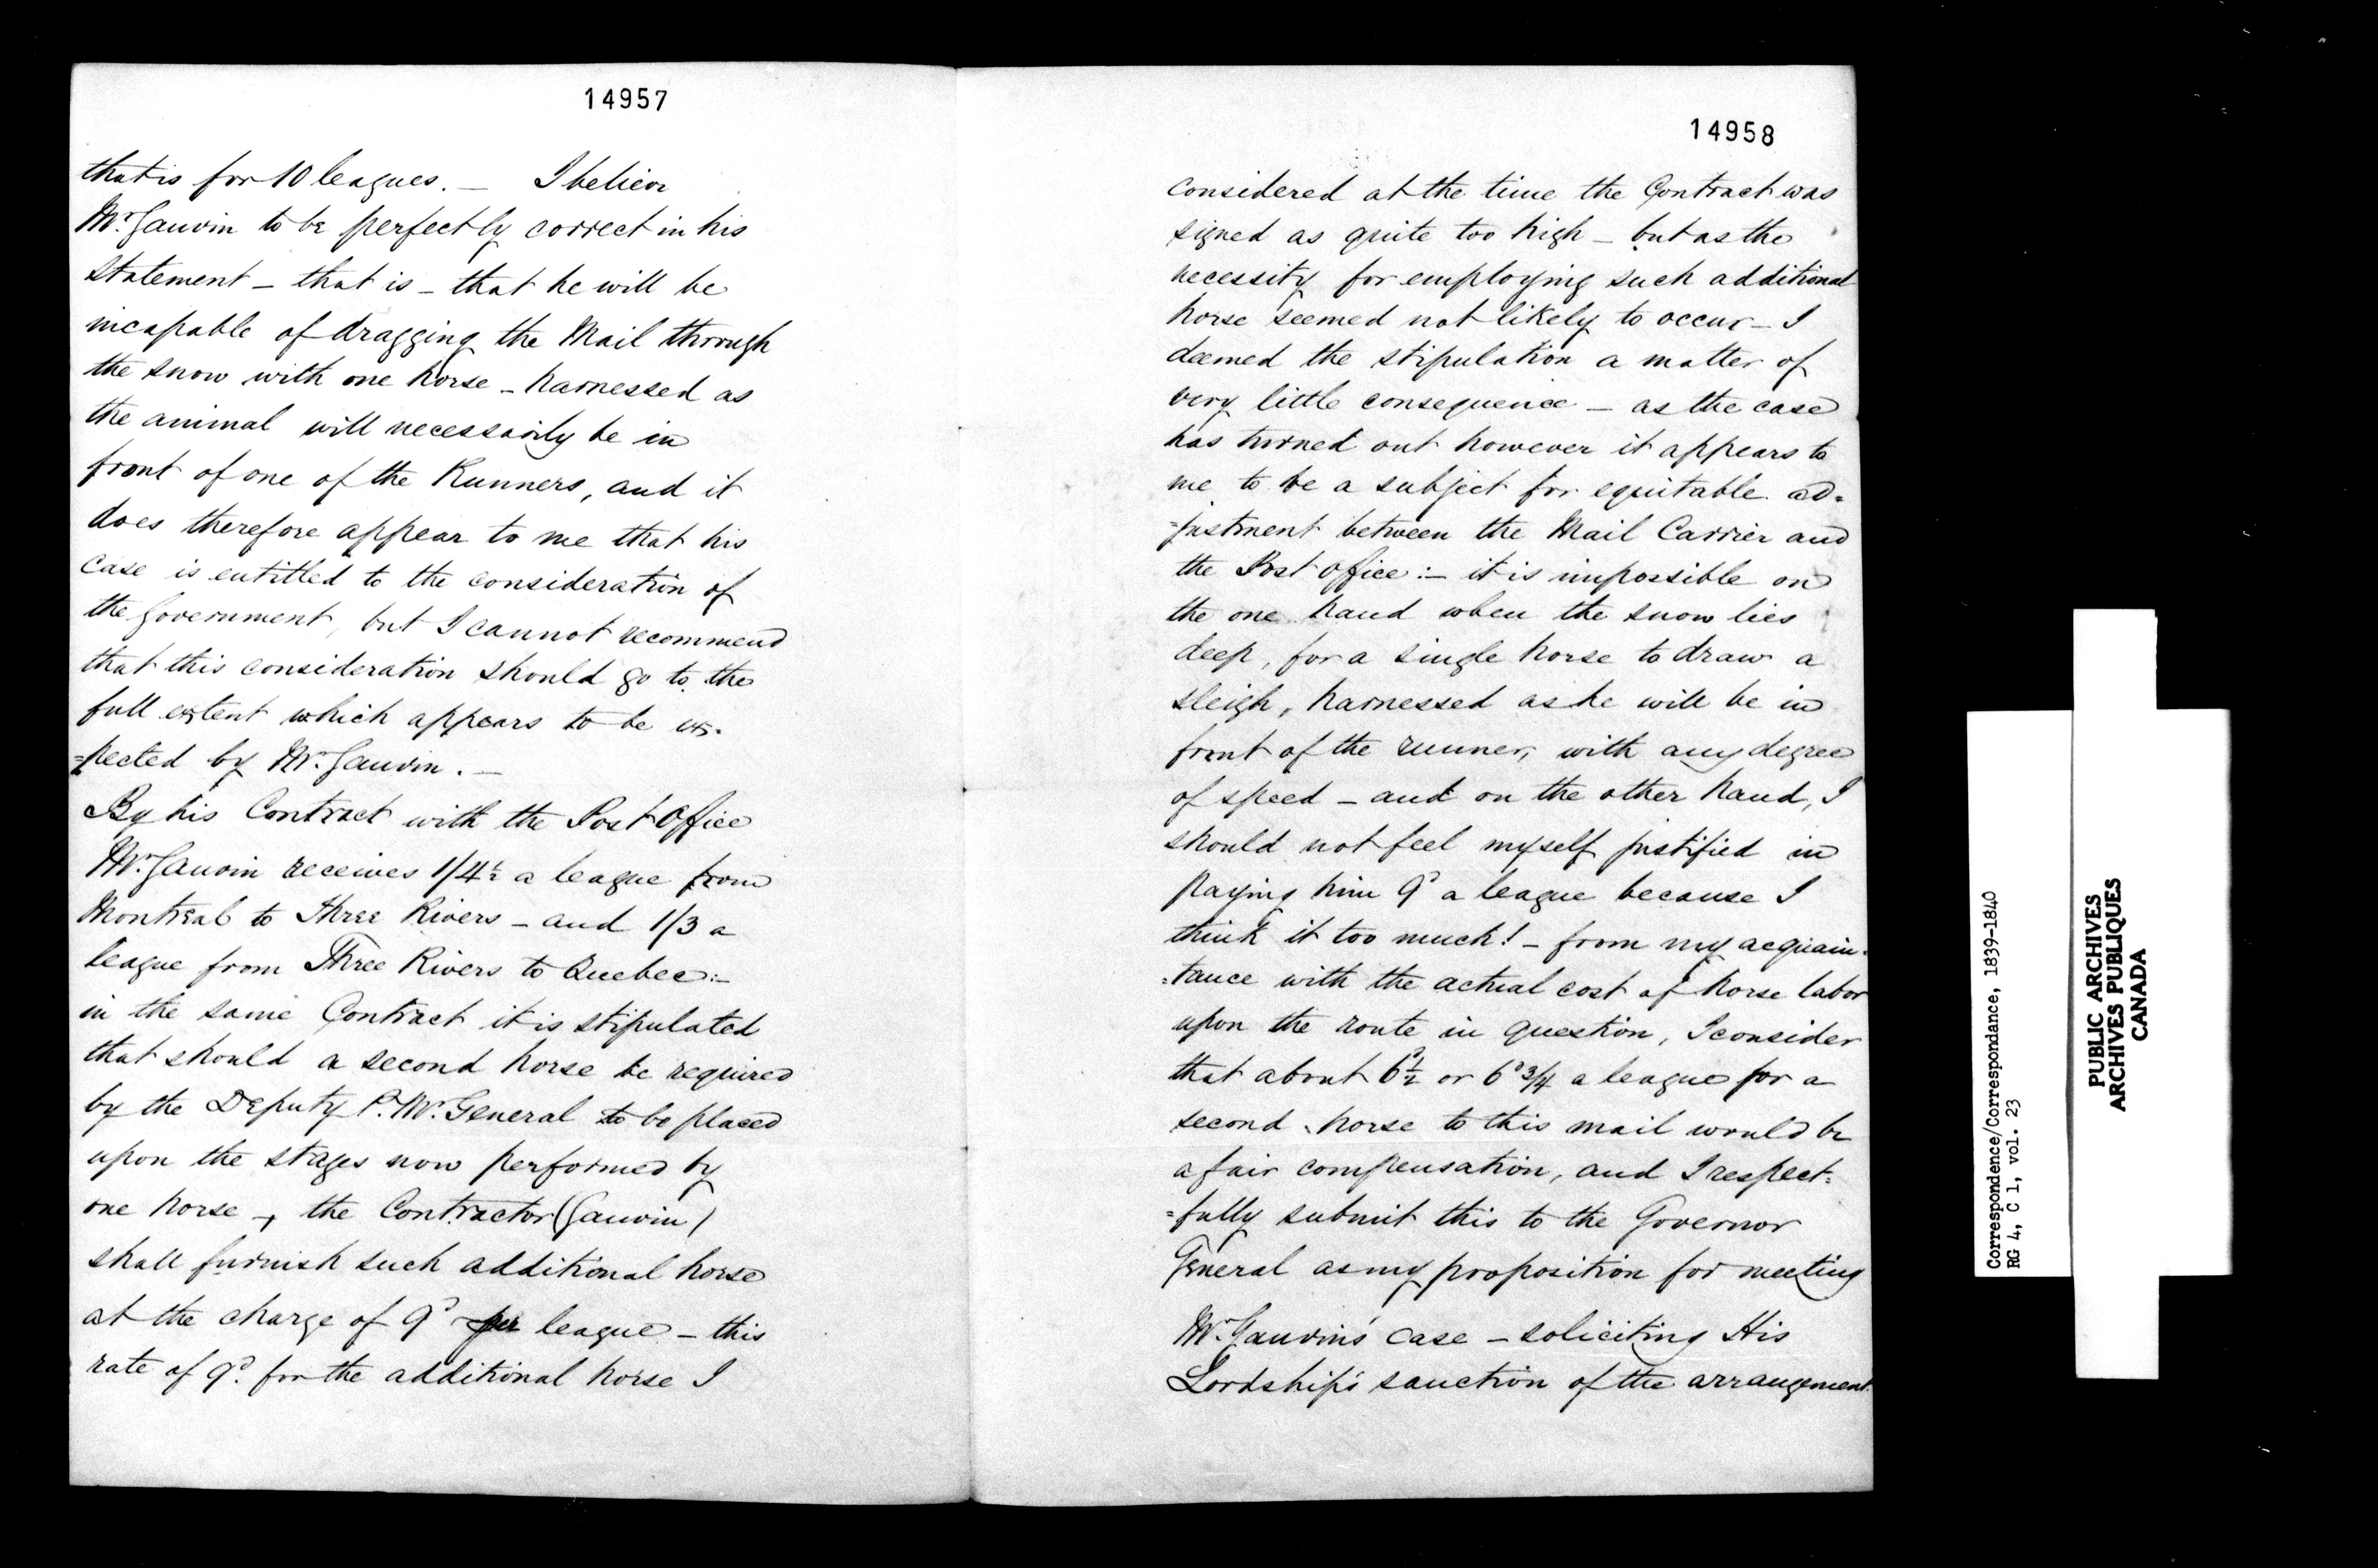 14957
that is for 10 leagues. — I believe
Mr. Gauvin to be perfectly correct in his
statement – that is – that he will be
incapable of dragging the Mail through
the snow with one horse – harnessed as
the animal will necessarily be in
front of one of the Runners, and it
does therefore appear to me that his
case is entitled to the consideration of
the Government, but I cannot recommend
that this consideration should go to the
full extent which appears to be ex-
=pected by Mr. Gauvin. —
By his Contract with the Post Office
Mr. Gauvin receives 1/4½ a league from
Montreal to Three Rivers – and 1/3 a
league from Three Rivers to Quebec:–
in the same Contract it is stipulated
that should a second horse be required
by the Deputy P. M. General to be placed
upon the stages now performed by
one horse –, the Contractor (Gauvin)
shall furnish such additional horse
at the charge of 9d per league – this
rate of 9d. for the additional horse I
14958
considered at the time the Contract was
signed as quite too high – but as the
necessity for employing such additional
horse seemed not likely to occur – I
deemed the stipulation a matter of
very little consequence – as the case
has turned out however it appears to
me to be a subject for equitable ad=
=justment between the Mail Carrier and
the Post Office:– it is impossible on
the one hand when the snow lies
deep, for a single horse to draw a
sleigh, harnessed as he will be in
front of the runner, with any degree
of speed – and on the other hand, I
should not feel myself justified in
paying him 9d a league because I
think it too much! – from my acquain=
=tance with the actual cost of horse labor
upon the route in question, I consider
that about 6d½ or 6d¾ a league for a
second horse to this mail would be
a fair compensation, and I respect=
=fully submit this to the Governor
General as my proposition for meeting
Mr. Gauvin's case – soliciting His
Lordship's sanction of the arrangement.
Correspondence/Correspondance, 1839-1840
RG 4, C 1, vol. 23
PUBLIC ARCHIVES
ARCHIVES PUBLIQUES
CANADA